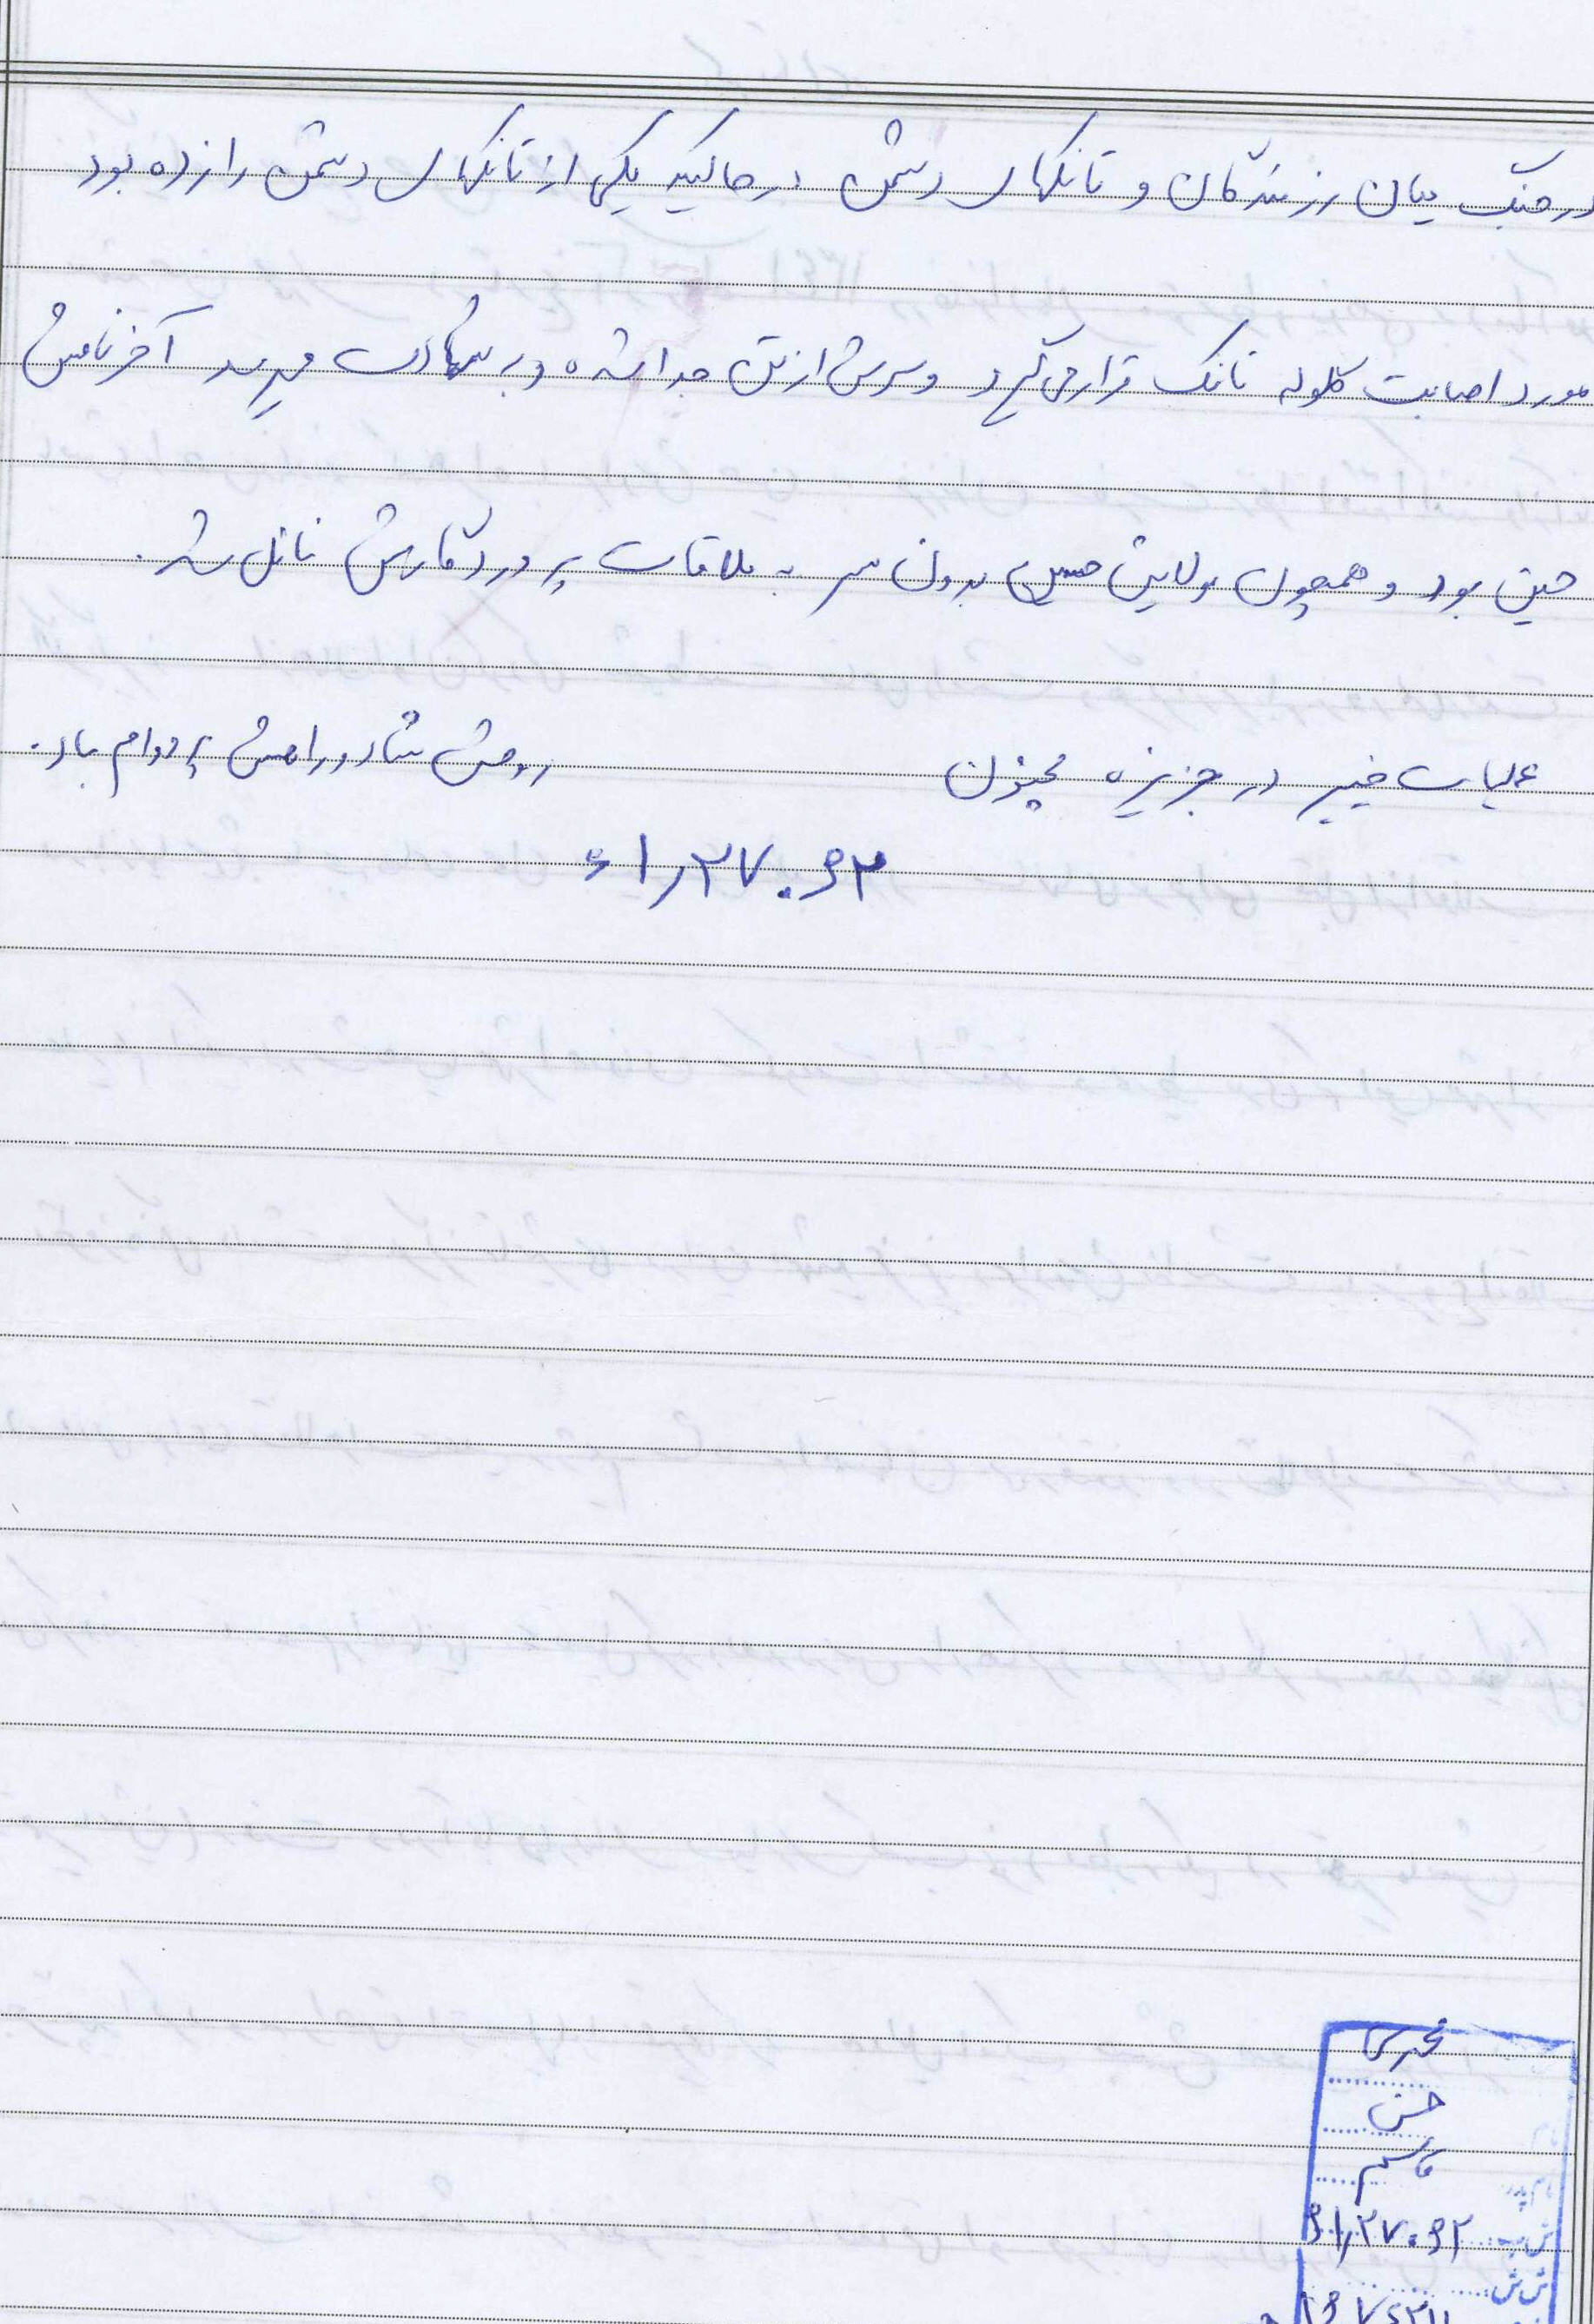 در جنگ میان رزمندگان و تانکهای دشمن در حالیکه یکی از تانکهای دشمن را زده بود
مورد اصابت گلوله تانک قرار می گیرد و سرش از تن جدا شده و به شهادت میرسد آخر نامش
حسین بود و همچون مولایش حسین بدون سر به ملاقات پروردگارش نائل شد.
عملیات خیبر در جزیره مجنون
روحش شاد و راهش پر دوام باد.
محمدی
حسن
قاسم
نام پدر
ش ش